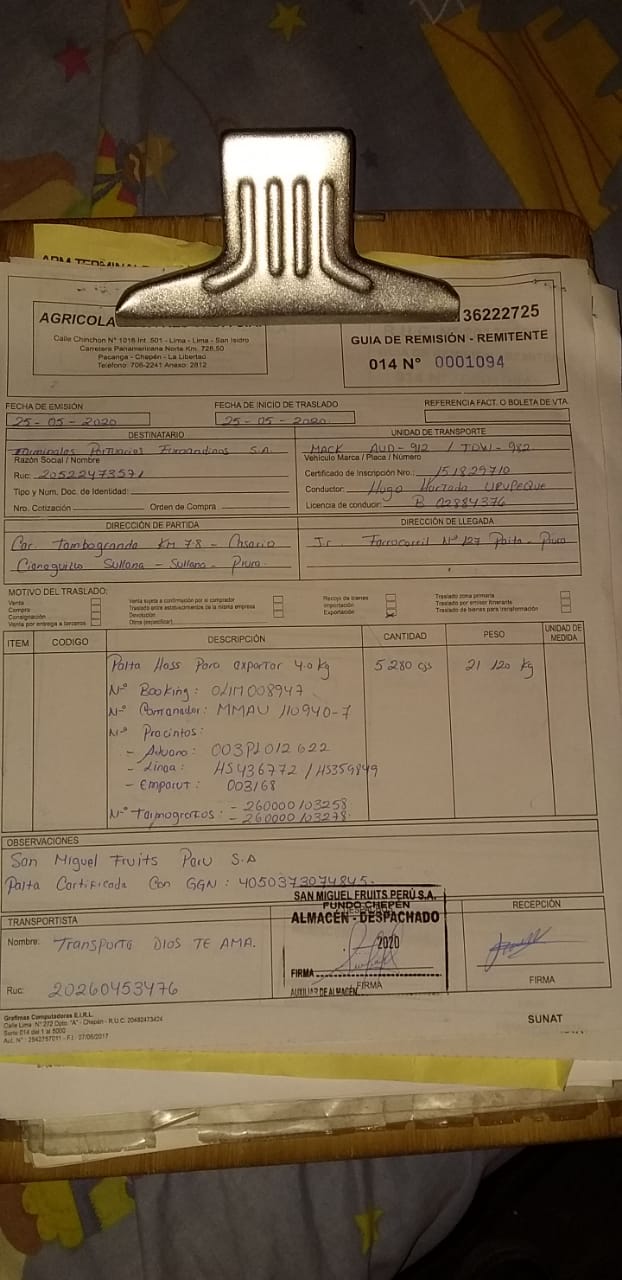 APM TERMINAL
AGRICOLA
Calle Chinchon N° 1018 Int. 501 - Lima - Lima - San Isidro
Carretera Panamericana Norte Km. 728.50
Pacanga - Chepén - La Libertad
Telefono: 706-2241 Anexo: 2812
36222725
GUIA DE REMISIÓN - REMITENTE
014 N° 0001094
FECHA DE EMISIÓN
25-05-2020
FECHA DE INICIO DE TRASLADO
25-05-2020
REFERENCIA FACT. O BOLETA DE VTA.
DESTINATARIO
Terminales Portuarios Euroandinos S.A.
Razón Social / Nombre
Ruc: 20522473571
Tipo y Num. Doc. de Identidad:
Nro. Cotización: Orden de Compra:
UNIDAD DE TRANSPORTE
MACK AUD-912 / TDW-982
Vehículo Marca / Placa / Número
Certificado de Inscripción Nro.: 151829710
Conductor: Hugo Hurtado URUPEQUE
Licencia de conducir: B 02884376
DIRECCIÓN DE PARTIDA
Car. Tambogrande KM 78 - Caserio
Cieneguillo Sullana - Sullana - Piura
DIRECCIÓN DE LLEGADA
Jr. Ferrocarril N° 127 Paita - Piura
MOTIVO DEL TRASLADO:
Venta
Compra
Consignación
Venta por entrega a terceros
Venta sujeta a confirmación por el comprador
Traslado entre establecimientos de la misma empresa
Devolución
Otros (especificar)
Recojo de bienes
Importación
Exportación
Traslado zona primaria
Traslado por emisor itinerante
Traslado de bienes para transformación
ITEM CODIGO DESCRIPCIÓN CANTIDAD PESO UNIDAD DE MEDIDA
Palta Hass Para exportar 4.0 kg 5 280 cjs 21 120 kg
N° Booking: 041M008947
N° Contenedor: MMAU 110940-7
N° Precintos:
- Aduana: 003P1012622
- Linea: HS436772 / HS359849
- Empacut: 003168
N° Termografos: - 260000103258
- 260000103278
OBSERVACIONES
San Miguel Fruits Peru S.A
Palta Certificada Con GGN: 4050373074845.
TRANSPORTISTA
Nombre: Transporte DIOS TE AMA.
Ruc: 20260453476
SAN MIGUEL FRUITS PERÚ S.A.
FUNDO CHEPÉN
ALMACÉN - DESPACHADO
2020
FIRMA
AUXILIAR DE ALMACÉN
FIRMA
RECEPCIÓN
FIRMA
Grafimas Computadoras E.I.R.L.
Calle Lima N° 272 Dpto. "A" - Chepén - R.U.C. 20482473424
Serie 014 del 1 al 5000
Aut. N°: 2942757011 - F.I.: 07/06/2017
SUNAT